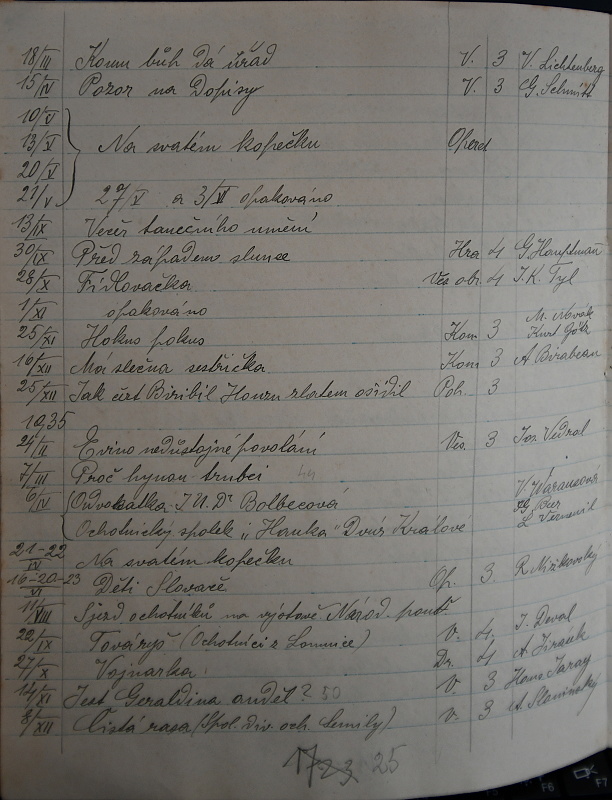 18/III Komu bůh dá úřad V. 3 V. Lichtenberg
15/IV Pozor na Dopisy V. 3 G. Schmitt
10/V
13/V Na svatém kopečku Operet
20/V
21/V 27/V a 3/VI opakováno.
13/IX Večer tanečního umění
30/IX Před západem slunce Hra 4 G. Hauptman
28/X Fidlovačka Ves. obr. 4 J. K. Tyl
1/XI opakováno
25/XI Hokus pokus Kom 3 M. Novák Kurt Götz
16/XII Má slečna sestřička Kom 3 A Birabeau
25/XII Jak čert Biribil Honzu zlatem ošidil Poh. 3
1935
24/II Evino nedůstojné povolání Ves. 3 Jos. Vedral
7/III Proč hynou trubci V. Waransová
6/IV Advokátka J. U. Dr Bolbecová Ber L Verneuil
Ochotnický spolek "Hanka" Dvůr Králové
21-22/IV Na svatém kopečku Op. 3 R Nížkovský
16-20-23/VI Děti Slovače
11/VIII Sjezd ochotníků na výstavě Národ. pouť
22/IX Tovaryš (Ochotníci z Lomnice) V. 4. J. Deval
27/X Vojnarka. Dr. 4 A. Jirásek
14/XI Jest Geraldina anděl? 50 V. 3 Hans Jaray
8/XII Čistá rasa (Spol. div. och. Semily) V. 3 A. Slonimský
1723 25
F6 F7